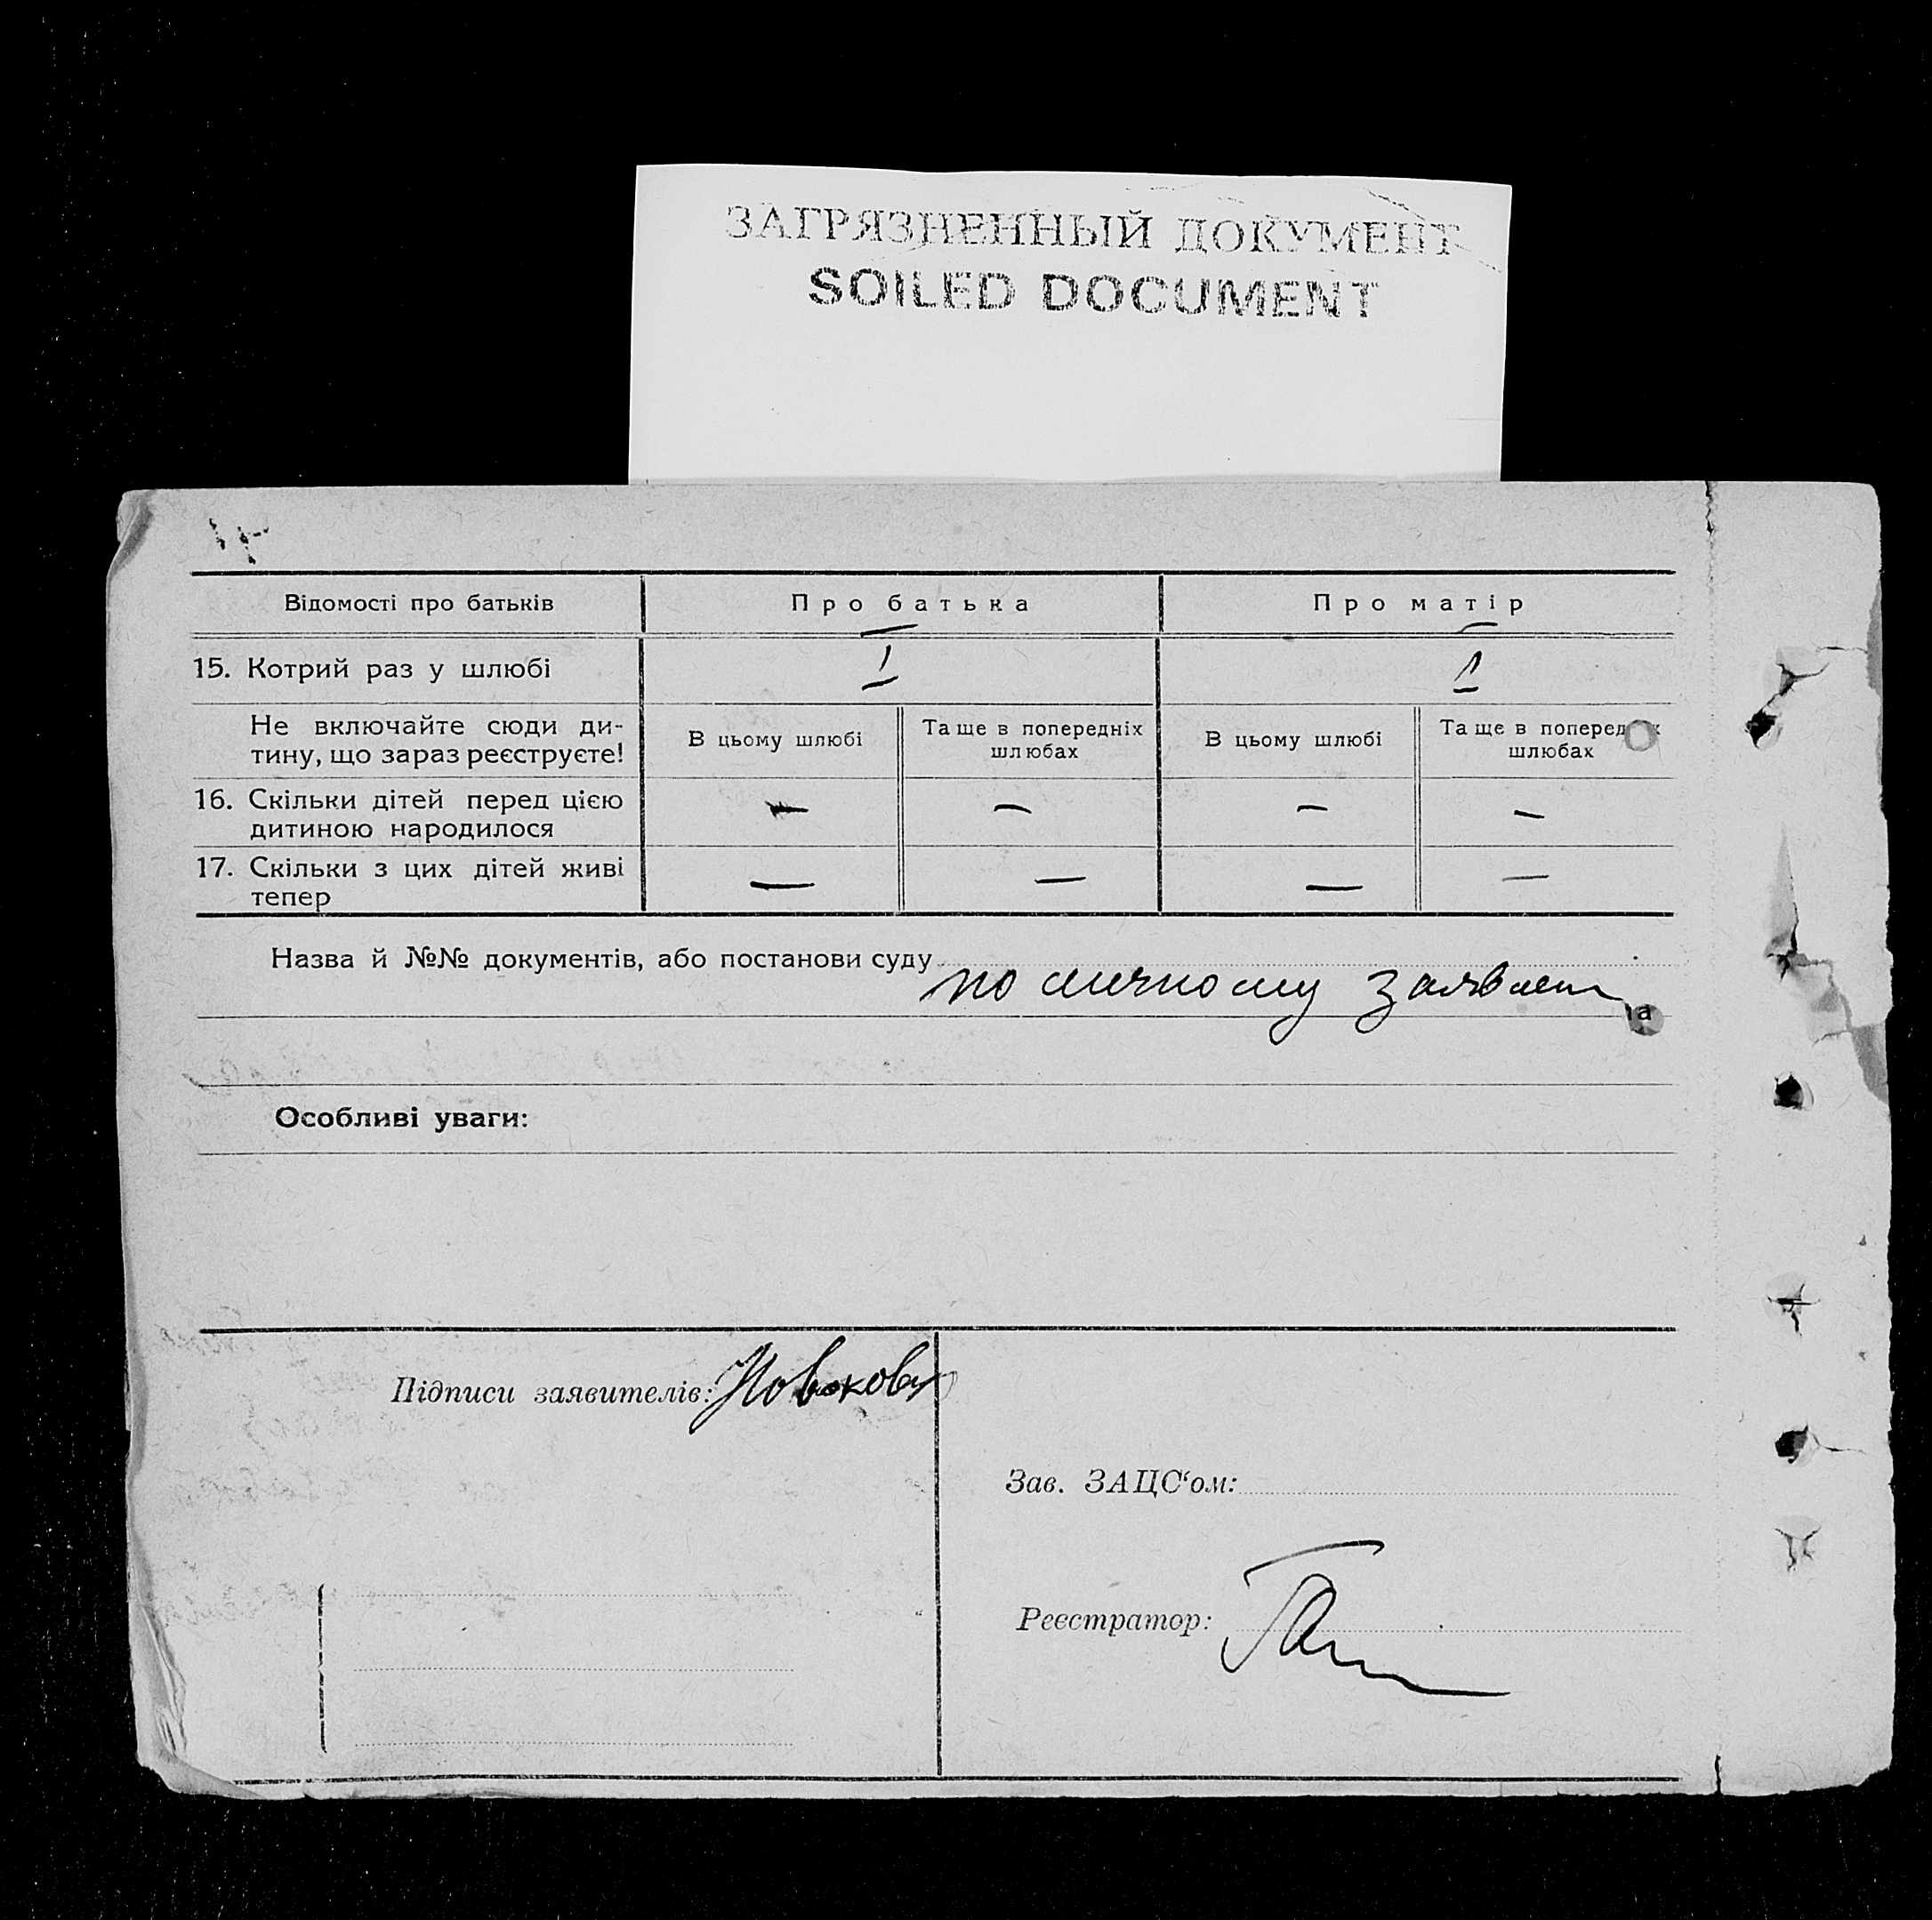 ЗАГРЯЗНЕННЫЙ ДОКУМЕНТ
SOILED DOCUMENT
Відомості про батьків Про батька Про матір
15. Котрий раз у шлюбі I 1
Не включайте сюди ди-
тину, що зараз реєструєте!
В цьому шлюбі Та ще в попередніх
шлюбах
В цьому шлюбі Та ще в поперед х
шлюбах
16. Скільки дітей перед цією — — — —
дитиною народилося
17. Скільки з цих дітей живі — — — —
тепер
Назва й №№ документів, або постанови суду по личному заявлен
Особливі уваги:
Підписи заявителів: Новакова
Зав. ЗАЦС‘ом:
Реєстратор: